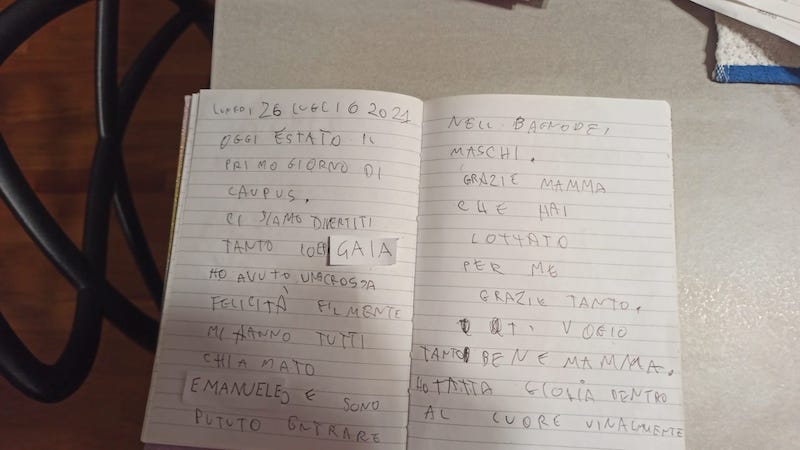 LUNEDI 26 LUGLIO 2021
OGGI ESTATO IL
PRIMO GIORNO DI
CAUPUS.
CI SIAMO DIVERTITI
TANTO IOE GAIA
HO AVUTO UNAGROSSA
FELICITÀ FILMENTE
MI HANNO TUTTI
CHIAMATO
EMANUELE E SONO
PUTUTO ENTRARE
NELL BAGNODEI
MASCHI.
GRAZIE MAMMA
CHE HAI
LOTTATO
PER ME
GRAZIE TANTO.
TI VOGIO
TANTO BENE MAMMA.
HO TATTA GIOHIA DENTRO
AL CUORE VINALMENTE